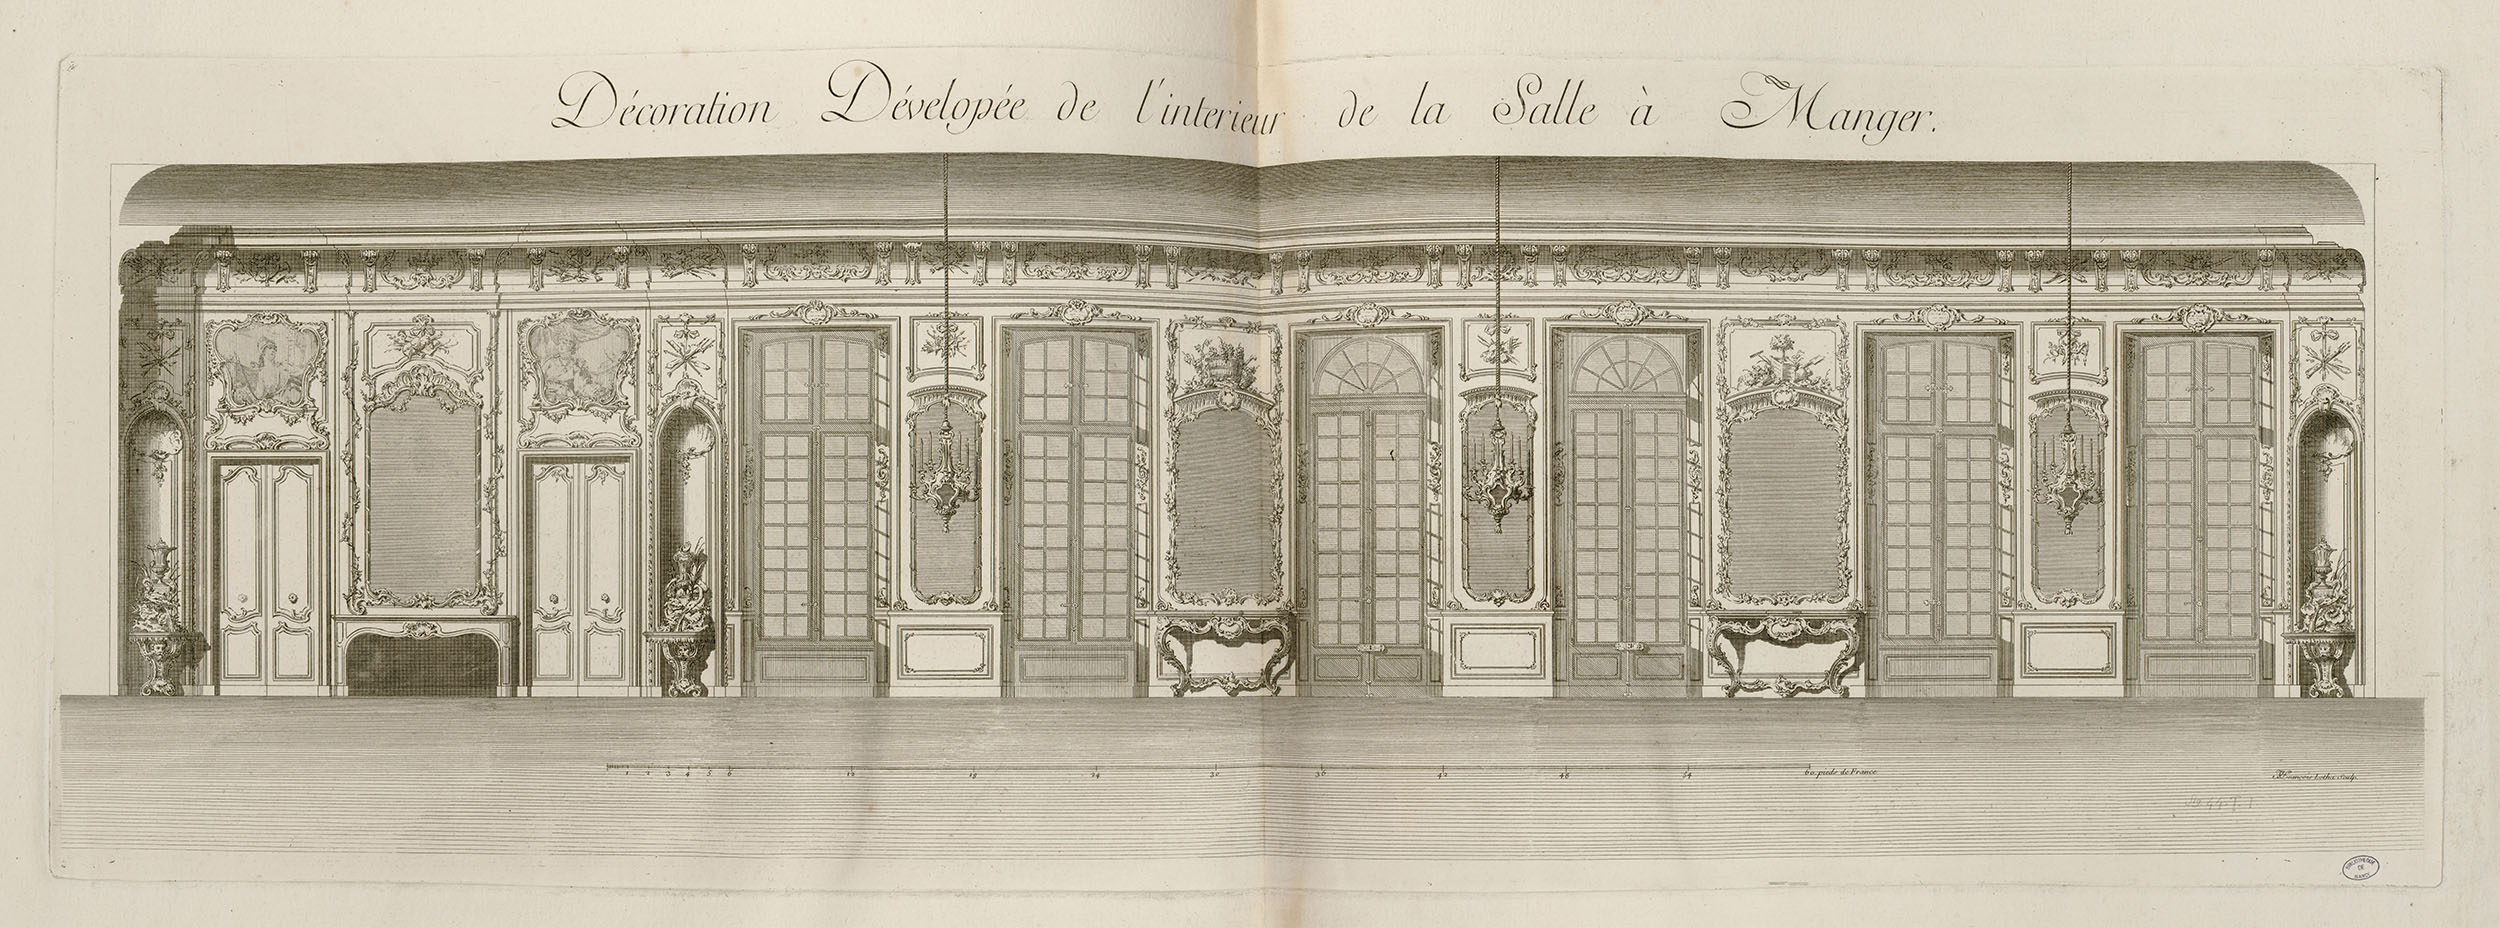 Décoration Dévelopée de l'interieur de la Salle à Manger.
1 2 3 4 5 6 12 18 24 30 36 42 48 54 60 pieds de France
François Lotha Sculp.
BIBLIOTHEQUE
DE
NANCY